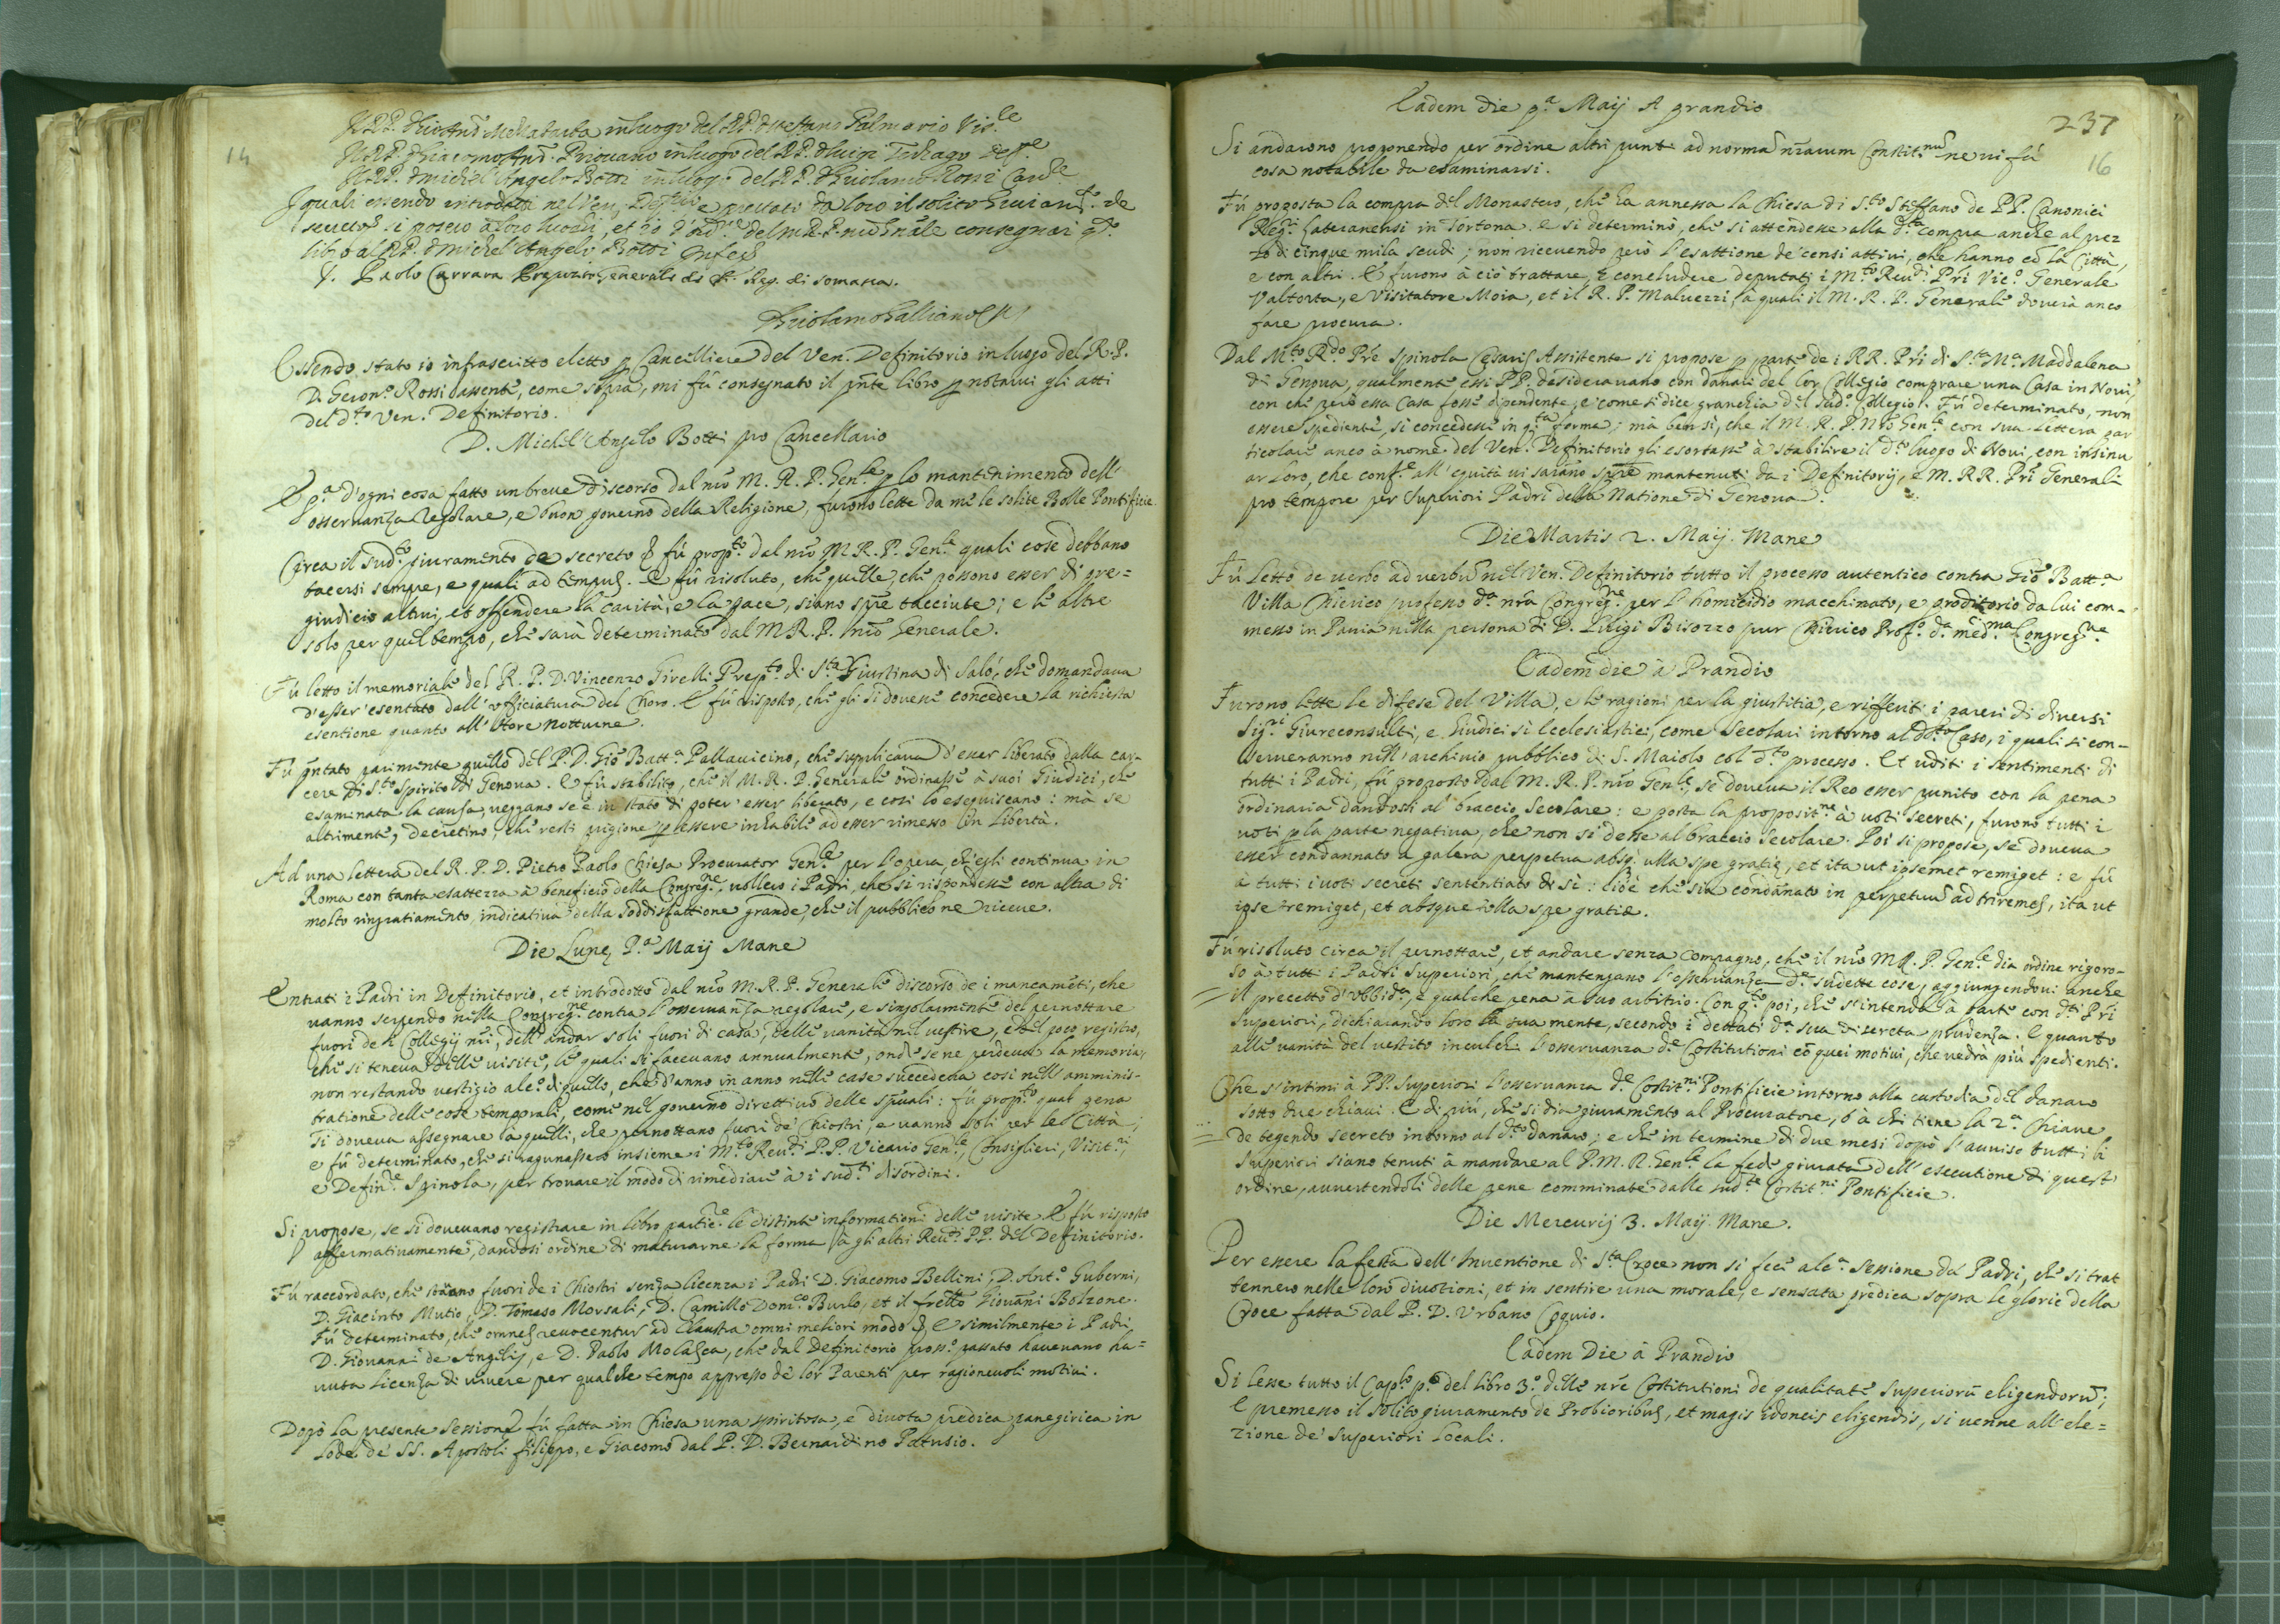 14
Il R.P. D. Gio And. Mellatarba in luogo del R.P. D. Stefano Palmerio Vis.le
Il R.P. D. Giacomo Ant. Priouano in luogo del R.P. D. Luigi Def.re
Il R.P. D. Michel' Angelo Botti in luogo del R.P. D. Girolamo Rossi Canc.e
I quali essendo introdotti nel Ven. Def.rio e prestato da loro il solito Giuram.to de
secreto si posero à loro luoghi, et io d'ord.e del M. R. P. nrō Gn̄ale consegnai q.to
libro al R.P. D. Michel' Angelo Botti
D. Paolo Carrara Preposito Generale de Ch. Reg. di Somasca.
D. Girolamo Galliano
Essendo stato io infrascritto eletto p Cancelliere del Ven. Definitorio in luogo del R. P.
D. Geron.o Rossi assente, come sopra, mi fù consegnato il pn̄te libro p notarui gli atti
del d.to Ven. Definitorio.
D. Michel' Angelo Botti pro Cancellario
E p.a d'ogni cosa fatto un breue discorso dal nrō M. R. P. Gen.le p lo mantenimento dell'
osseruanza regolare, e buon gouerno della Religione, furono lette da me le solite Bolle Pontificie.
Circa il sud.to giuramento de secreto & fù prop.to dal nrō M. R. P. Gen.le quali cose debbano
tacersi sempre, e quali ad tempus. E fù risoluto, che quelle, che possono esser di pre=
giudicio altrui, et offendere la carità, e la pace, siano sp̄re tacciute; e le altre
solo per quel tempo, che sarà determinato dal M. R. P. nrō Generale.
Fù letto il memoriale del R. P. D. Vincenzo Girelli Prep.to di S.ta Giustina di Salò, che domandaua
d'esser' esentato dall' officiatura del Choro. E fù risposto, che gli si douesse concedere la richiesta
esentione quanto all' Hore Notturne.
Fù pn̄tato parimente quello del P. D. Giō Batt.a Pallauicino, che supplicaua d'esser liberato dalla car-
cere di S.to Spirito di Genoua. E fù stabilito, che il M. R. P. Generale ordinasse à suoi Giudici, che
esaminata la causa, veggano se è in stato di poter' esser liberato, e così lo eseguiscano: mà se
altrimente, decretino, che resti prigione p essere inhabile ad esser rimesso in Libertà.
Ad una lettera del R. P. D. Pietro Paolo Chiesa Procurator Gen.le per l'opera, ch'egli continua in
Roma con tanta esattezza à beneficio della Congreg.ne, vollero i Padri, che si rispondesse con altra di
molto ringratiamento, indicatiua della soddisfattione grande, che il pubblico ne riceue.
Die Lunę P.a Maij Mane
Entrati i Padri in Definitorio, et introdotto dal nrō M. R. P. Generale discorso de i mancamēti, che
vanno serpendo nella Congreg.ne contra l'osseruanza regolare, e singolarmente del pernottare
fuori de i Collegij nrī, dell' andar soli fuori di casa, delle vanità nel vestire, e del poco registro,
che si teneua delle visite, le quali si faceuano annualmente, onde se ne perdeua la memoria,
non restando vestigio alc.o di quello, che d'anno in anno nelle case succedeua così nell' amminis-
tratione delle cose temporali, come nel gouerno direttiuo delle spūali: fù prop.to qual pena
si doueua assegnare à quelli, che pernottano fuori de' Chiostri, e vanno soli per le Città,
e fù determinato, che si ragunassero insieme i M.to Reu.di P.P. Vicario Gen.le, Consiglieri, Visit.ri,
e Defin.re Spinola, per trouare il modo di rimediare à i sud.ti disordini.
Si propose, se si doueuano registrare in libro partic.re le distinte informationi delle visite. E fù risposto
affermatiuamente, dandosi ordine di maturarne la forma à gli altri Reu.di P.P. del Definitorio.
Fù raccordato, che stāno fuori de i Chiostri senza licenza i Padri D. Giacomo Bellini, D. Ant.o Guberni,
D. Giacinto Mutio, D. Tomaso Morsali, D. Camillo Dom.co Burlo, et il frello Giouāni Bolzone.
Fù determinato, che omnes reuocentur ad Claustra omni meliori modo &. E similmente i Padri
D. Giouanni de Angelis, e D. Paolo Molasca, che dal Definitorio pross.o passato haueuano ha=
uuta licenza di viuere per qualche tempo appresso de' lor Parenti per ragioneuoli motiui.
Dopò la presente Sessione fù fatta in Chiesa una spiritosa, e diuota predica panegirica in
Lode de' SS. Apostoli Filippo, e Giacomo dal P. D. Bernardino Patusio.
237
16
Eadem die p.a Maij A prandio
Si andarono proponendo per ordine altri punti ad normā nrārum Constit.nū ne ui fù
cosa notabile da esaminarsi.
Fù proposta la compra del Monastero, che ha annessa la Chiesa di S.to Steffano de PP. Canonici
Reg.ri Latteranensi in Tortona. E si determinò, che si attendesse alla d.ta compra anche al prez
zo di cinque mila scudi; non riceuendo però l'esattione de' censi attiui, che hanno cō la Città,
e con altri. E furono à ciò trattare, e concludere deputati i M.to Reu.di Prī Vic.o Generale
Valtorta, e Visitatore Moia, et il R. P. Maluezzi, à quali il M. R. P. Generale douerà anco
fare procura.
Dal M.to R.do Prē Spinola Cesaris Assistente si propose p parte de i RR. Prī di S.ta M.a Maddalena
di Genoua, qualmente essi PP. desiderauano con danari del lor Collegio comprare una Casa in Noui,
con che però essa Casa fosse dipendente, e come si dice granchia del sud.o Collegio. Fù determinato, non
essere spediente, si concedesse in q.ta forma; ma ben sì, che il M. R. P. Nrō Gen.le con sua Lettera par
ticolare anco à nome del Ven. Definitorio gli esortasse à stabilire il d.to luogo di Noui, con insinu
ar Loro, che conf.e all' equità vi sarāno sp̄re mantenuti da i Definitorij, e M. RR. Prī Generali
pro tempore per Superiori Padri della Natione di Genoua.
Die Martis 2. Maij. Mane
Fù Letto de verbo ad verbū nel Ven. Definitorio tutto il processo autentico contra Giō Batt.a
Villa Chierico professo d.a nrā Congreg.ne per l'homicidio macchinato, e proditorio da lui com-
messo in Pauia nella persona di D. Luigi Bisozzo pur Chierico Prof.o d.a med.ma Congreg.ne
Eadem die à Prandio
Furono lette le difese del Villa, e le ragioni per la giustitia, e riffeeriti i pareri di diuersi
Sig.ri Giureconsulti, e Giudici sì Ecclesiastici, come Secolari intorno al d.to Caso, i quali si con-
serueranno nell' archiuio pubblico di S. Maiolo col d.to processo. Et uditi i sentimenti di
tutti i Padri, fù proposto dal M. R. P. nrō Gen.le, se doueua il Reo esser punito con la pena
ordinaria dandosi al braccio Secolare: e posta la proposit.ne à voti secreti, furono tutti i
voti p la parte negatiua, che non si desse al braccio Secolare. Poi si propose, se doueua
esser condannato a galera perpetua absq. ulla spe gratię, et ita ut ipsemet remiget: e fù
à tutti i voti secreti sententiato di sì: cioè che sia condānato in perpetuū ad triremes, ita ut
ipse remiget, et absque ulla spe gratiæ.
Fù risoluto circa il pernottare, et andare senza Compagno, che il nrō M. R. P. Gen.le dia ordine rigoro-
so à tutti i Padri Superiori, che mantengano l'osseruanza d.e sudette cose, aggiungendoui anche
il precetto d'Vbbid.a, e qualche pena à suo arbitrio. Con q.to poi, che s'intenda à parte con d.ti Prī
Superiori, dichiarando loro la sua mente, secondo i dettati d.a sua discreta prudenza. E quanto
alle vanità del vestito inculchi l'osseruanza d.e Costitutioni cō quei motiui, che vedrà più spedienti.
Che s'intimi à PP. Superiori l'osseruanza d.e Costit.ni Pontificie intorno alla custodia del danaro
sotto due chiaui. E di più, che si dia giuramento al Procuratore, ò à chi tiene la 2.a Chiaue
de tegendo secreto intorno al d.to danaro; e che in termine di due mesi dopò l'auuiso tutti li
Superiori siano tenuti à mandare al P. M. R. Gen.le la fede giurata dell' esecutione di quest'
ordine, auuertendoli delle pene comminate dalle sud.te Costit.ni Pontificie.
Die Mercurij 3. Maij. Mane.
Per essere la festa dell' Inuentione di S.ta Croce non si fece alc.a Sessione da' Padri, che si trat
tennero nelle loro diuotioni, et in sentire una morale, e sensata predica sopra le glorie della
Croce fatta dal P. D. Vrbano Coquio.
Eadem Die à Prandio
Si lesse tutto il Cap.lo p.o del Libro 3.o delle nrē Costitutioni de qualitate Superiorū eligendorū;
E premesso il solito giuramento de Probioribus, et magis idoneis eligendis, si venne all' ele=
zione de' Superiori Locali.